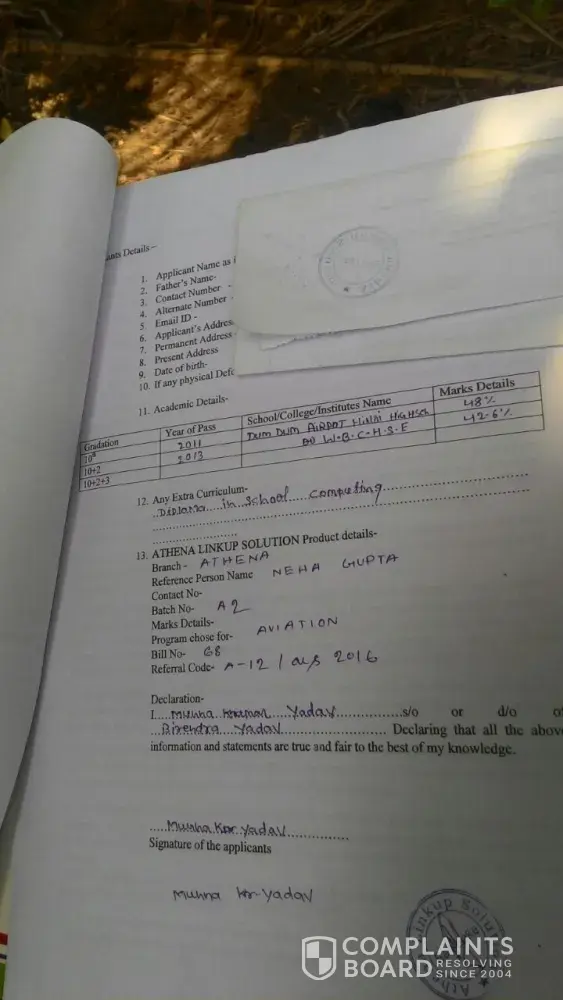 ants Details:-
1. Applicant Name as i
2. Father's Name-
3. Contact Number -
4. Alternate Number -
5. Email ID -
6. Applicant's Address
7. Permanent Address
8. Present Address
9. Date of birth-
10. If any physical Defe
11. Academic Details-
Gradation Year of Pass School/College/Institutes Name Marks Details
10th 2011 DUM DUM AIRPOT HINDI HGHSCH 48%
10+2 2013 W.B.C.H.S.E 42.6%
10+2+3
12. Any Extra Curriculum-
Diploma in School Computing
13. ATHENA LINKUP SOLUTION Product details-
Branch - ATHENA
Reference Person Name NEHA GUPTA
Contact No-
Batch No- A2
Marks Details-
Program chose for- AVIATION
Bill No- 68
Referral Code- A-12 / aug 2016
Declaration-
I....Munna Kumar Yadav................s/o or d/o of
...Birendra Yadav........................ Declaring that all the above
information and statements are true and fair to the best of my knowledge.
....Munna Kor Yadav..............
Signature of the applicants
Munna Kor Yadav
Linkup Solu
COMPLAINTS
BOARD RESOLVING
SINCE 2004